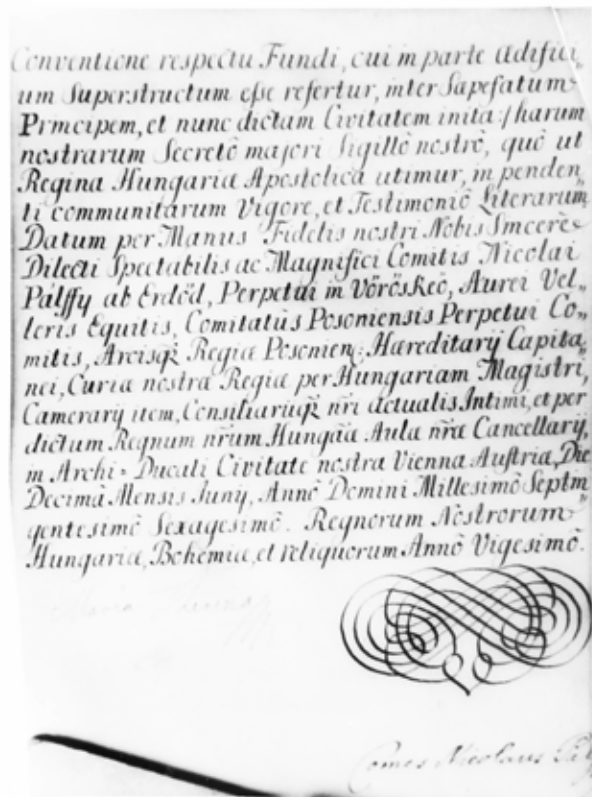 Conventione respectu Fundi, cui in parte ædifici„
um Superstructum eße refertur, inter Sapefatum
Principem, et nunc dictam Civitatem inita :/ harum
nostrarum Secretô majori Sigillô nostrô, quô ut
Regina Hungariæ Apostolica utimur, in penden„
ti communitarum Vigore, et Testimoniô Literarum
Datum per Manus Fidelis nostri Nobis Sincerè
Dilecti Spectabilis ac Magnifici Comitis Nicolai
Pálffy ab Erdöd, Perpetui in Vöröskeö, Aurei Vel„
leris Equitis, Comitatûs Posoniensis Perpetui Co„
mitis, Arcisq̃ Regiæ Posonien: Hæreditarij Capita„
nei, Curiæ nostræ Regiæ per Hungariam Magistri,
Camerarij item, Consiliarijq̃ nr̃i actualis Intimi, et per
dictum Regnum nr̃um Hungãæ Aulæ nr̃æ Cancellarij,
in Archi-Ducali Civitate nostra Vienna Austriæ, Die
Decimâ Mensis Junij, Annô Domini Millesimô Septin
gentesimô Sexagesimô. Regnorum Nostrorum
Hungariæ, Bohemiæ, et reliquorum Annô Vigesimô.
Maria Theresia
Comes Nicolaus Pálffy